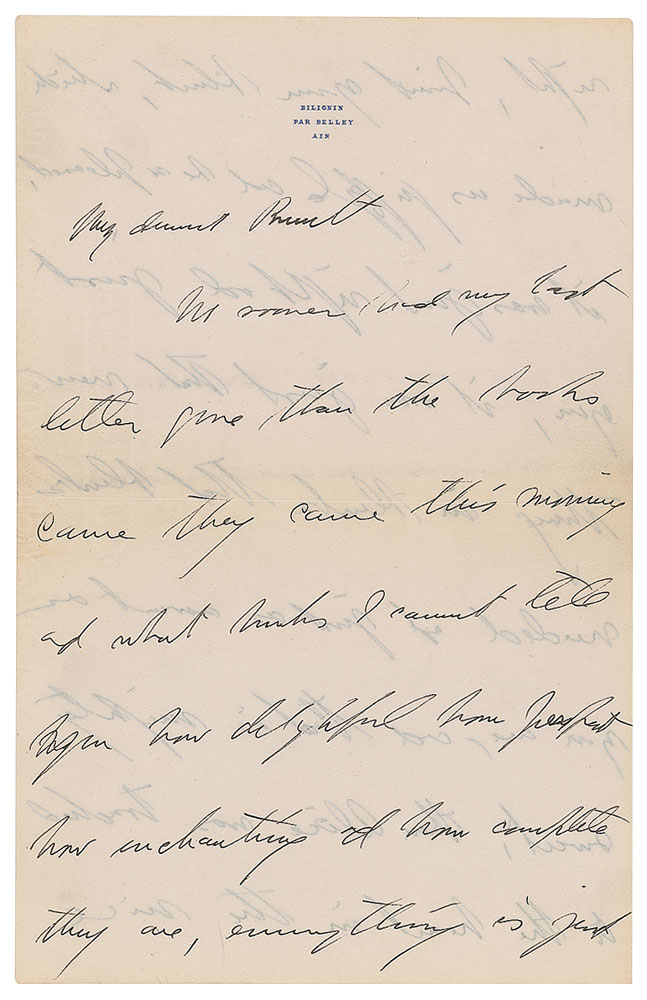 BILIGNIN
PAR BELLEY
AIN
My dearest
No sooner had my last
letter gone than the books
came they came this morning
and what books I cannot tell
how delightful how perfect
how enchanting and how complete
they are, everything is just